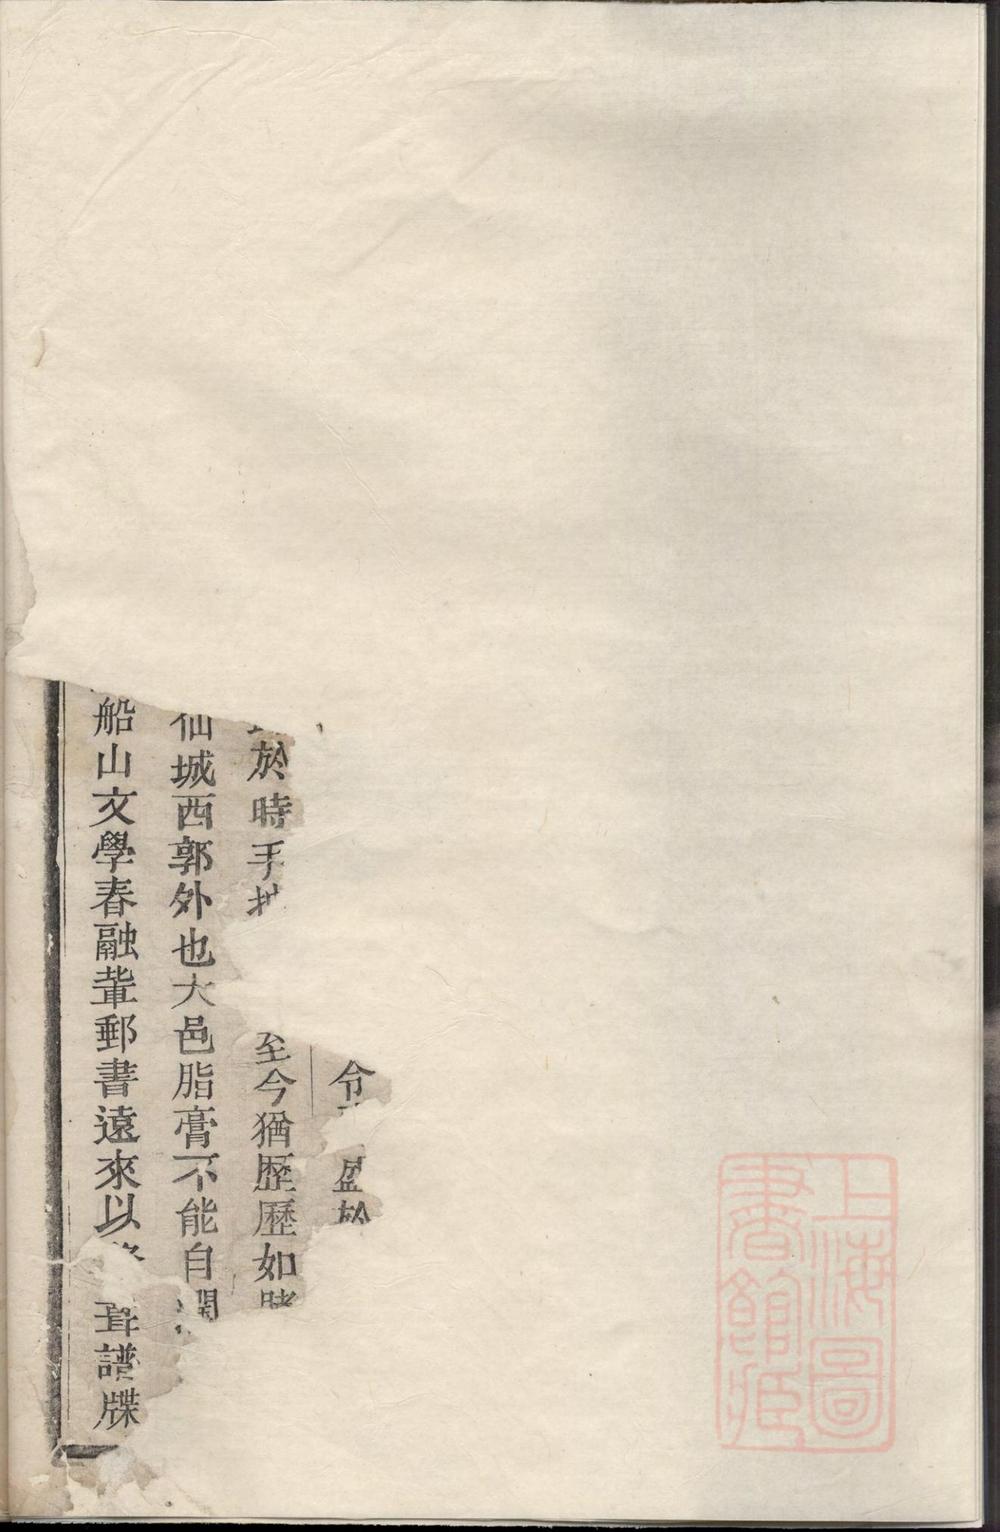 上海圖
書館藏
令 盈於
於時手 至今猶歷歷如睹
仙城西郭外也大邑脂膏不能自潤
船山文學春融輩郵書遠來以 譜牒